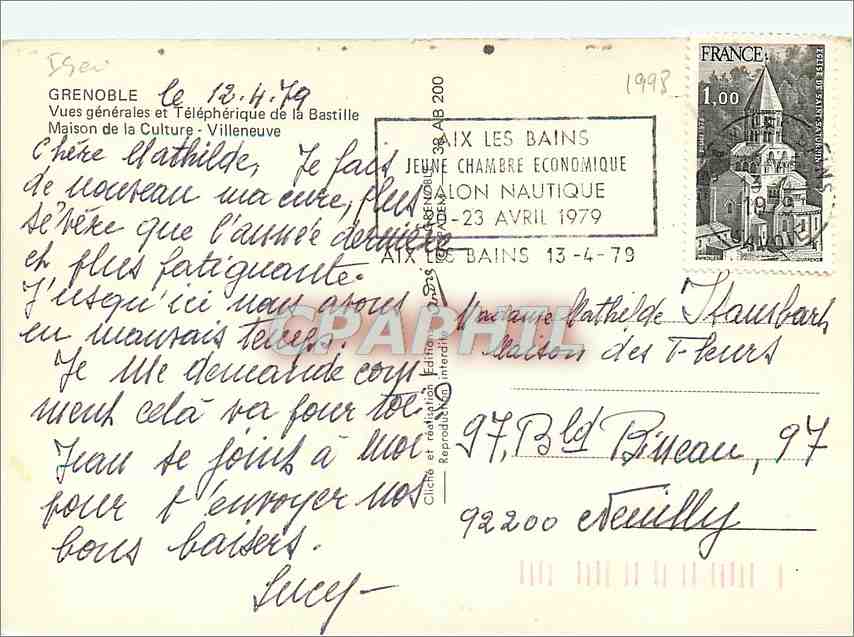 Iser
1998
GRENOBLE le 12.4.79
Vues générales et Téléphérique de la Bastille
Maison de la Culture - Villeneuve
Chère Mathilde, Je fais
de nouveau ma cure, plus
sévère que l'année dernière
et plus fatiguante.
J'usqu'ici nous avons
eu mauvais temps.
Je me demande com-
ment celà va pour toi?
Jean se joint à moi
pour t'envoyer nos
bons baisers.
Lucy
38 AB 200
GRENOBLE
Cliché et réalisation Editions
Reproduction interdite
AIX LES BAINS
JEUNE CHAMBRE ECONOMIQUE
SALON NAUTIQUE
-23 AVRIL 1979
AIX LES BAINS 13-4-79
FRANCE
1,00
EGLISE DE SAINT-SATURNIN
POSTES 1976
SAVOIE
Madame Mathilde Stansbach
Maison des Fleurs
97, Bld Bineau, 97
92200 Neuilly
CPARPHIL